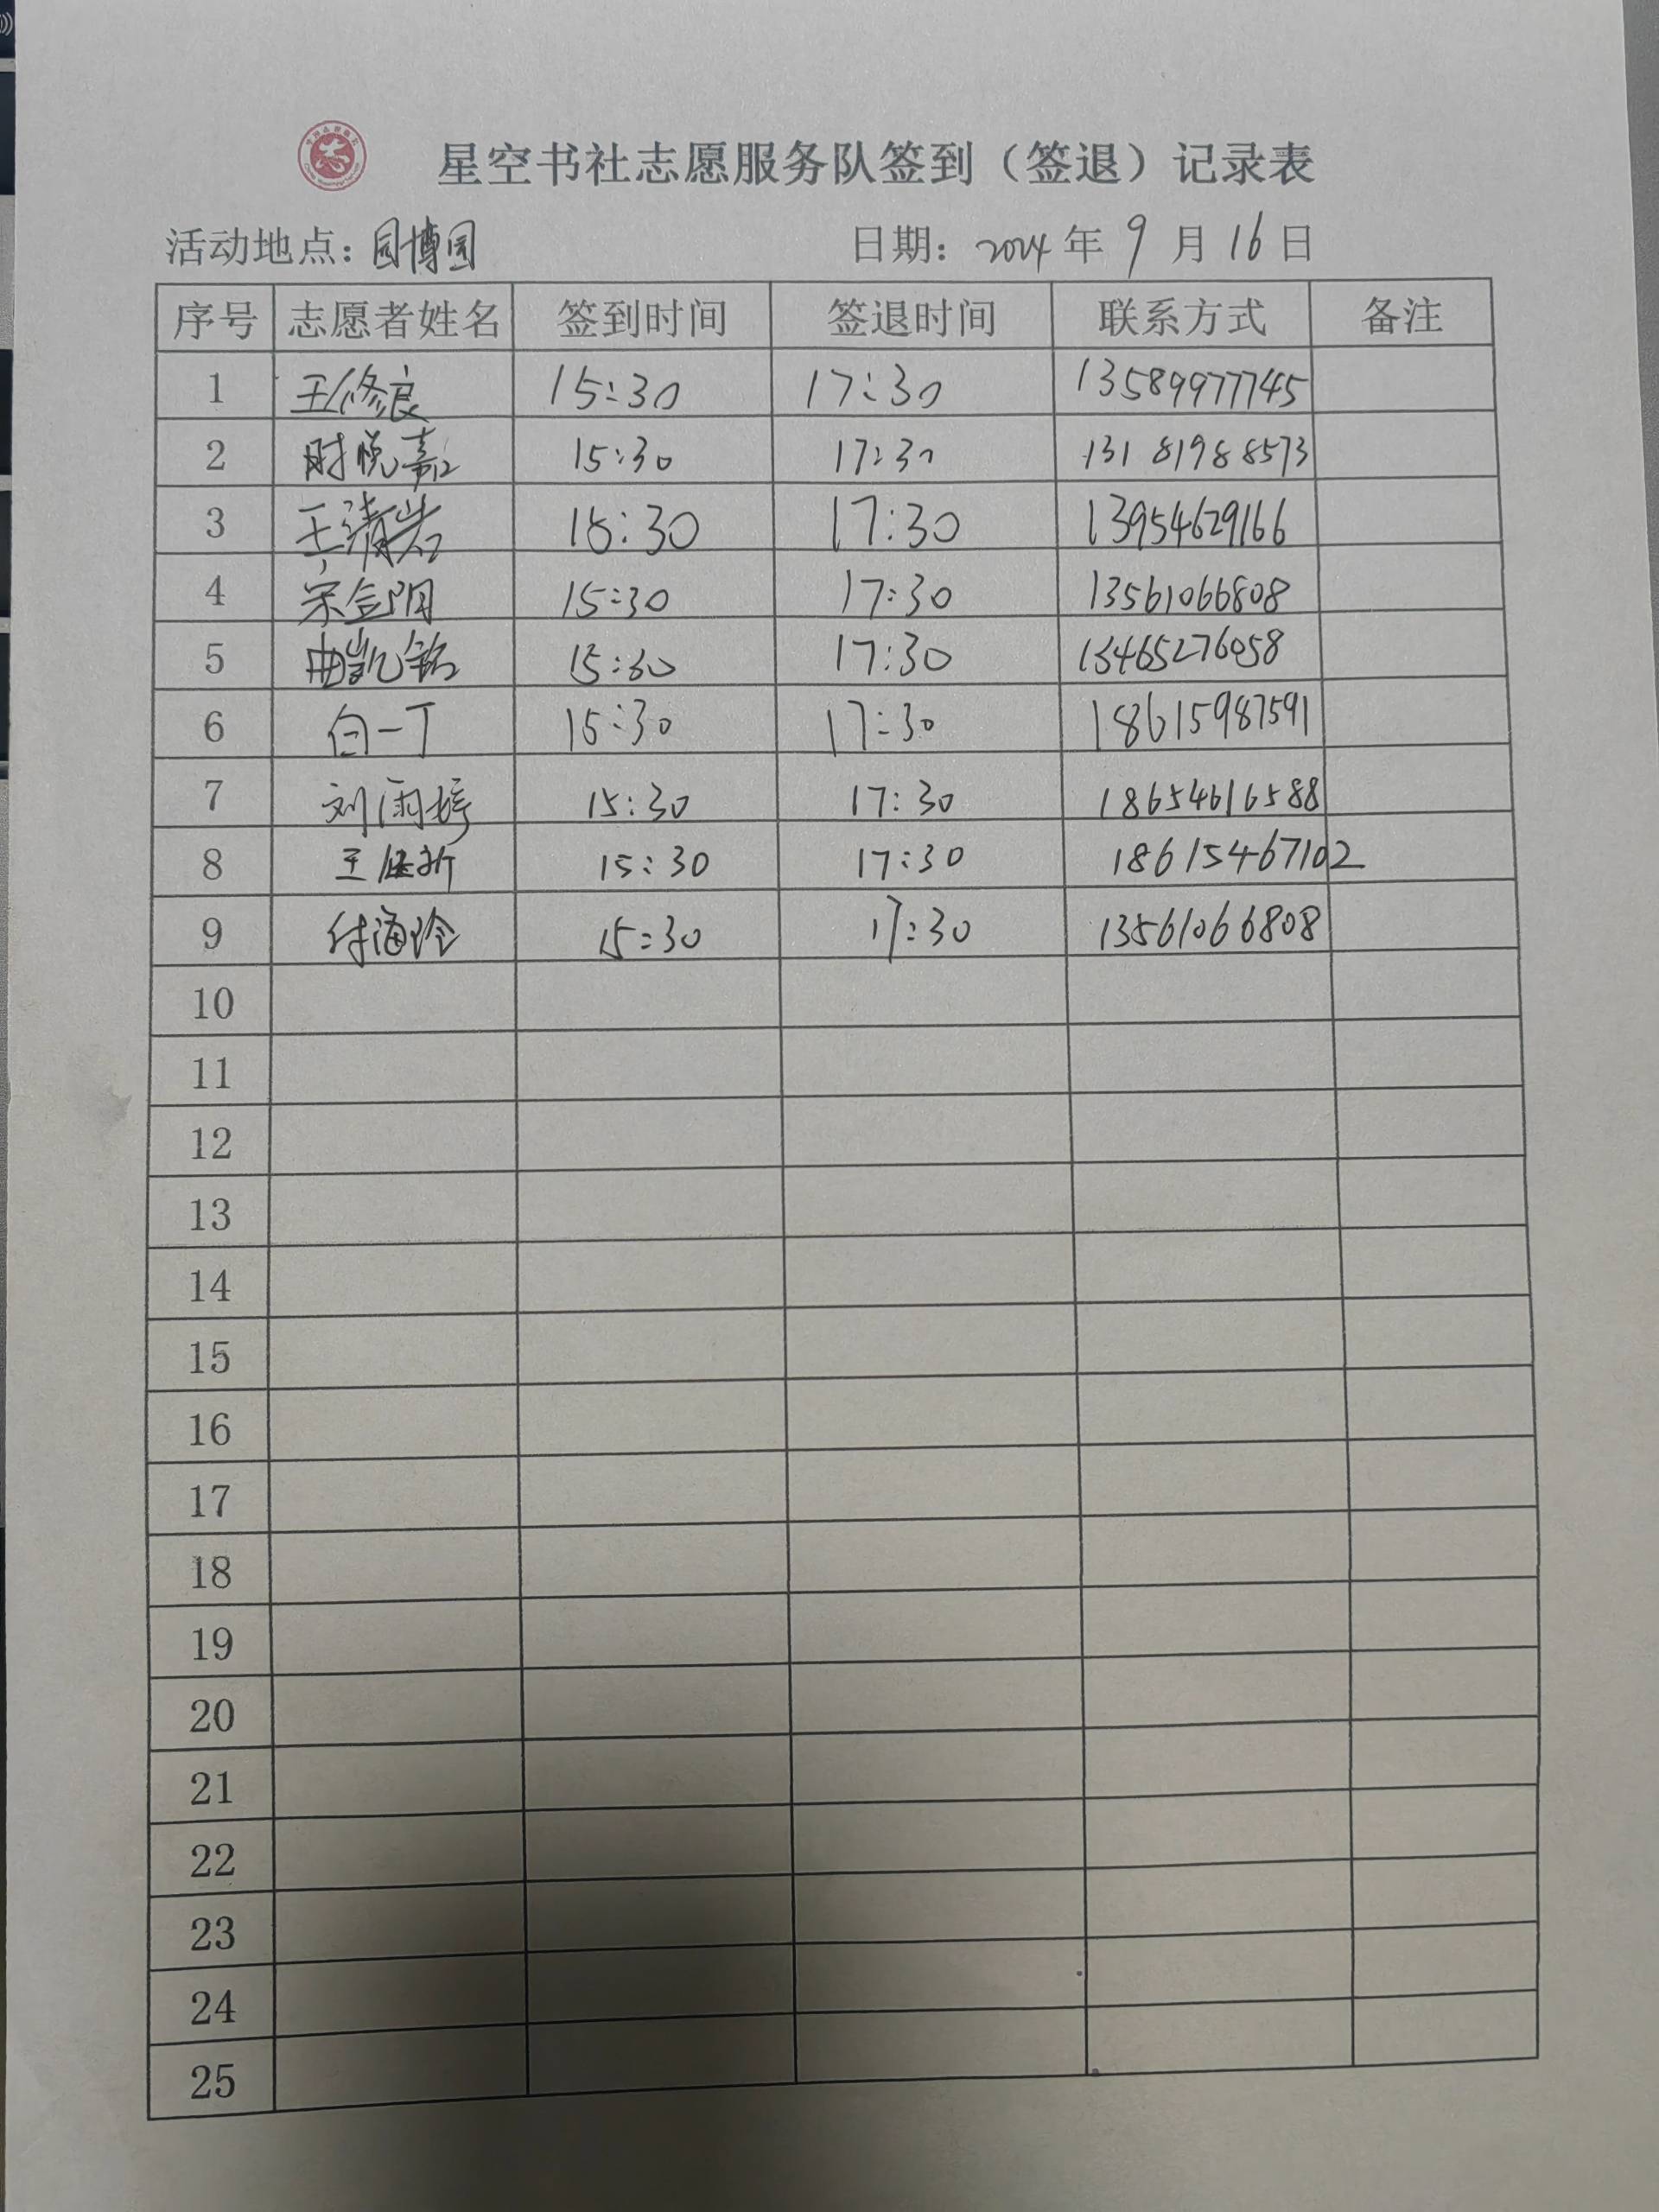 星空书社志愿服务队签到（签退）记录表
活动地点：园博园 日期：2024年9月16日
序号 志愿者姓名 签到时间 签退时间 联系方式 备注
1 王修良 15:30 17:30 13589977745
2 时悦嘉 15:30 17:30 13181988573
3 王清岩 15:30 17:30 13954629166
4 宋金阳 15:30 17:30 13561066808
5 曲凯铭 15:30 17:30 13465276058
6 白一丁 15:30 17:30 18615987591
7 刘雨婷 15:30 17:30 18654616588
8 王 15:30 17:30 18615467102
9 付海玲 15:30 17:30 13561066808
10
11
12
13
14
15
16
17
18
19
20
21
22
23
24
25